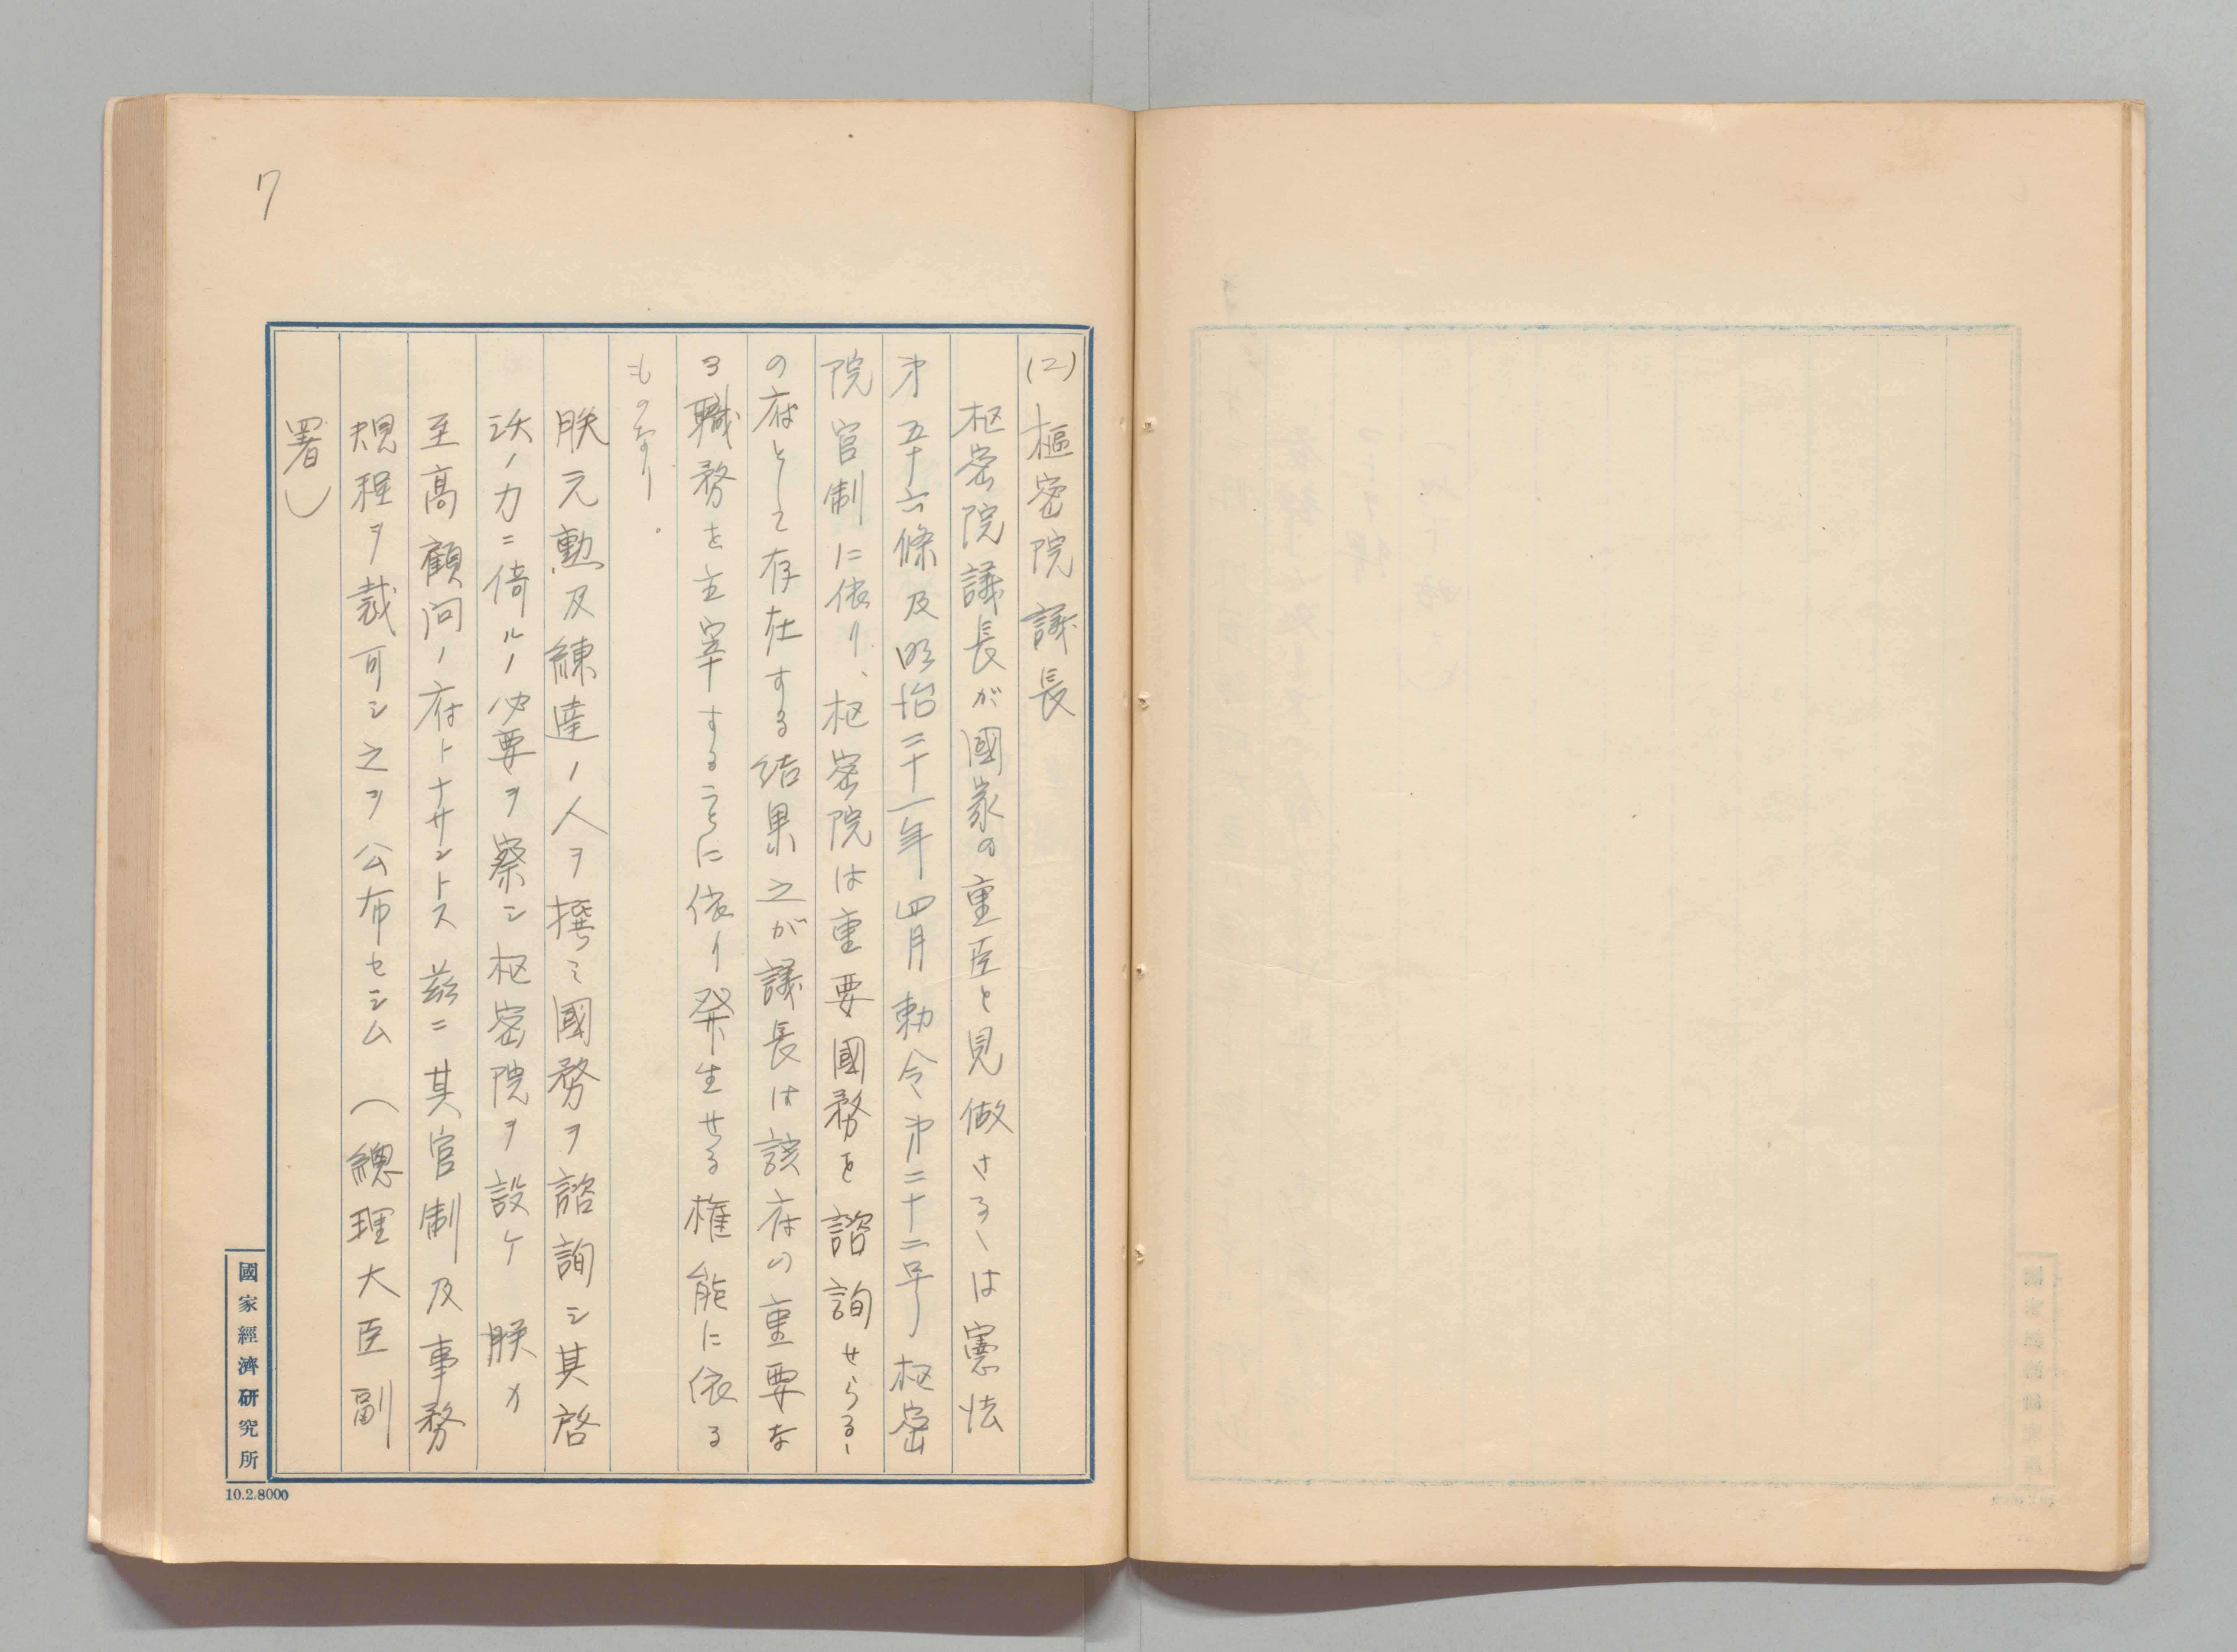 7
(2) 樞密院議長
枢密院議長が國家の重臣と見做さるゝは憲法
第五十六條及明治二十一年四月勅令第二十二号枢密
院官制に依り、枢密院は重要國務を諮詢せらるゝ
の府として存在する結果之が議長は該府の重要な
る職務を主宰することに依り発生せる権能に依る
ものなり。
朕元勲及練達ノ人ヲ撰ミ國務ヲ諮詢シ其啓
沃ノ力ニ倚ルノ必要ヲ察シ枢密院ヲ設ケ朕カ
至高顧問ノ府トナサントス茲ニ其官制及事務
規程ヲ裁可シ之ヲ公布セシム（總理大臣副
署）
國家經濟研究所
10.2.8000